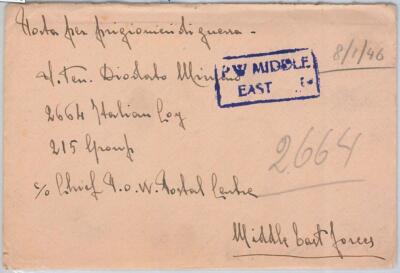 Posta per prigionieri di guerra -
8/1/46
S. Ten. Diodato
P.W MIDDLE
EAST
2664 Italian Coy
215 Group
2664
c/o Chief P.o.W. Postal Centre
Middle East Forces